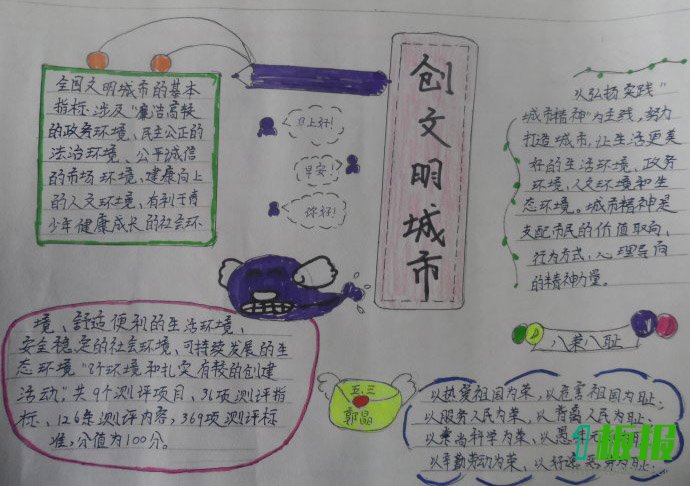 创文明城市
全国文明城市的基本
指标涉及“廉洁高较
的政务环境、民主公正的
法治环境、公平诚信
的市场环境、健康向上
的人文环境、有利于青
少年健康成长的社会环
早安!
你好!
以弘扬实践“
城市精神”为主线,努力
打造城市,让生活更美
好的生活环境、政务
环境、人文环境和生
态环境。城市精神是
支配市民的价值取向、
行为方式、心理导向
的精神力量。
境、舒适便利的生活环境、
安全稳定的社会环境、可持续发展的生
态环境”8个环境和扎实有较的创建
活动”,共9个测评项目、36项测评指
标、126条测评内容,369项测评标
准,分值为100分。
五.三
郭晶
八荣八耻
以热爱祖国为荣,以危害祖国为耻;
以服务人民为荣、以背离人民为耻、
以崇尚科学为荣、以愚昧无
以辛勤劳动为荣、以好逸恶劳为耻;
板报